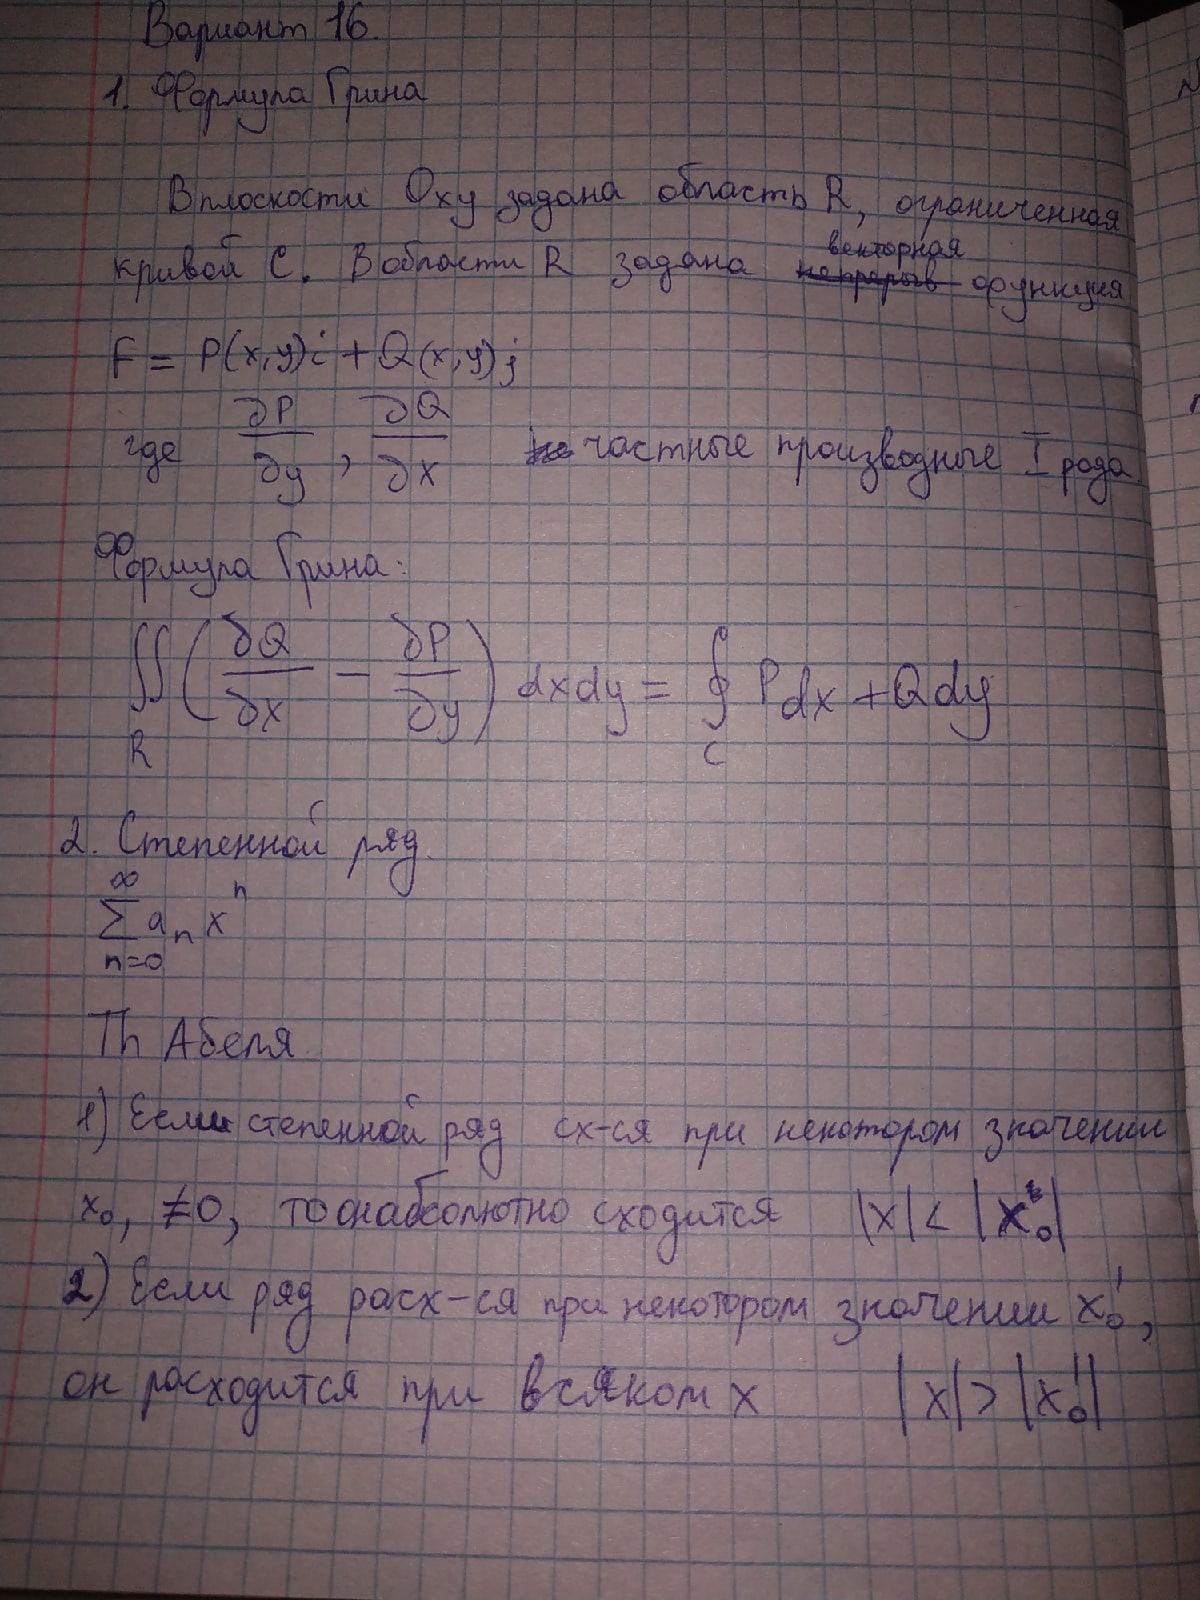 Вариант 16.
1. Формула Грина
В плоскости Oxy задана область R, ограниченная
кривой C. В области R задана векторная функция
F = P(x,y)i + Q(x,y)j
где ∂P/∂y, ∂Q/∂x частные производные I рода
Формула Грина:
∬_R (∂Q/∂x − ∂P/∂y) dxdy = ∮_C Pdx + Qdy
2. Степенной ряд.
∑_{n=0}^{∞} a_n x^n
Th Абеля.
1) Если степенной ряд сх-ся при некотором значении
x₀, ≠0, то он абсолютно сходится |x| < |x₀|
2) Если ряд расх-ся при некотором значении x₀',
он расходится при всяком x |x| > |x₀'|